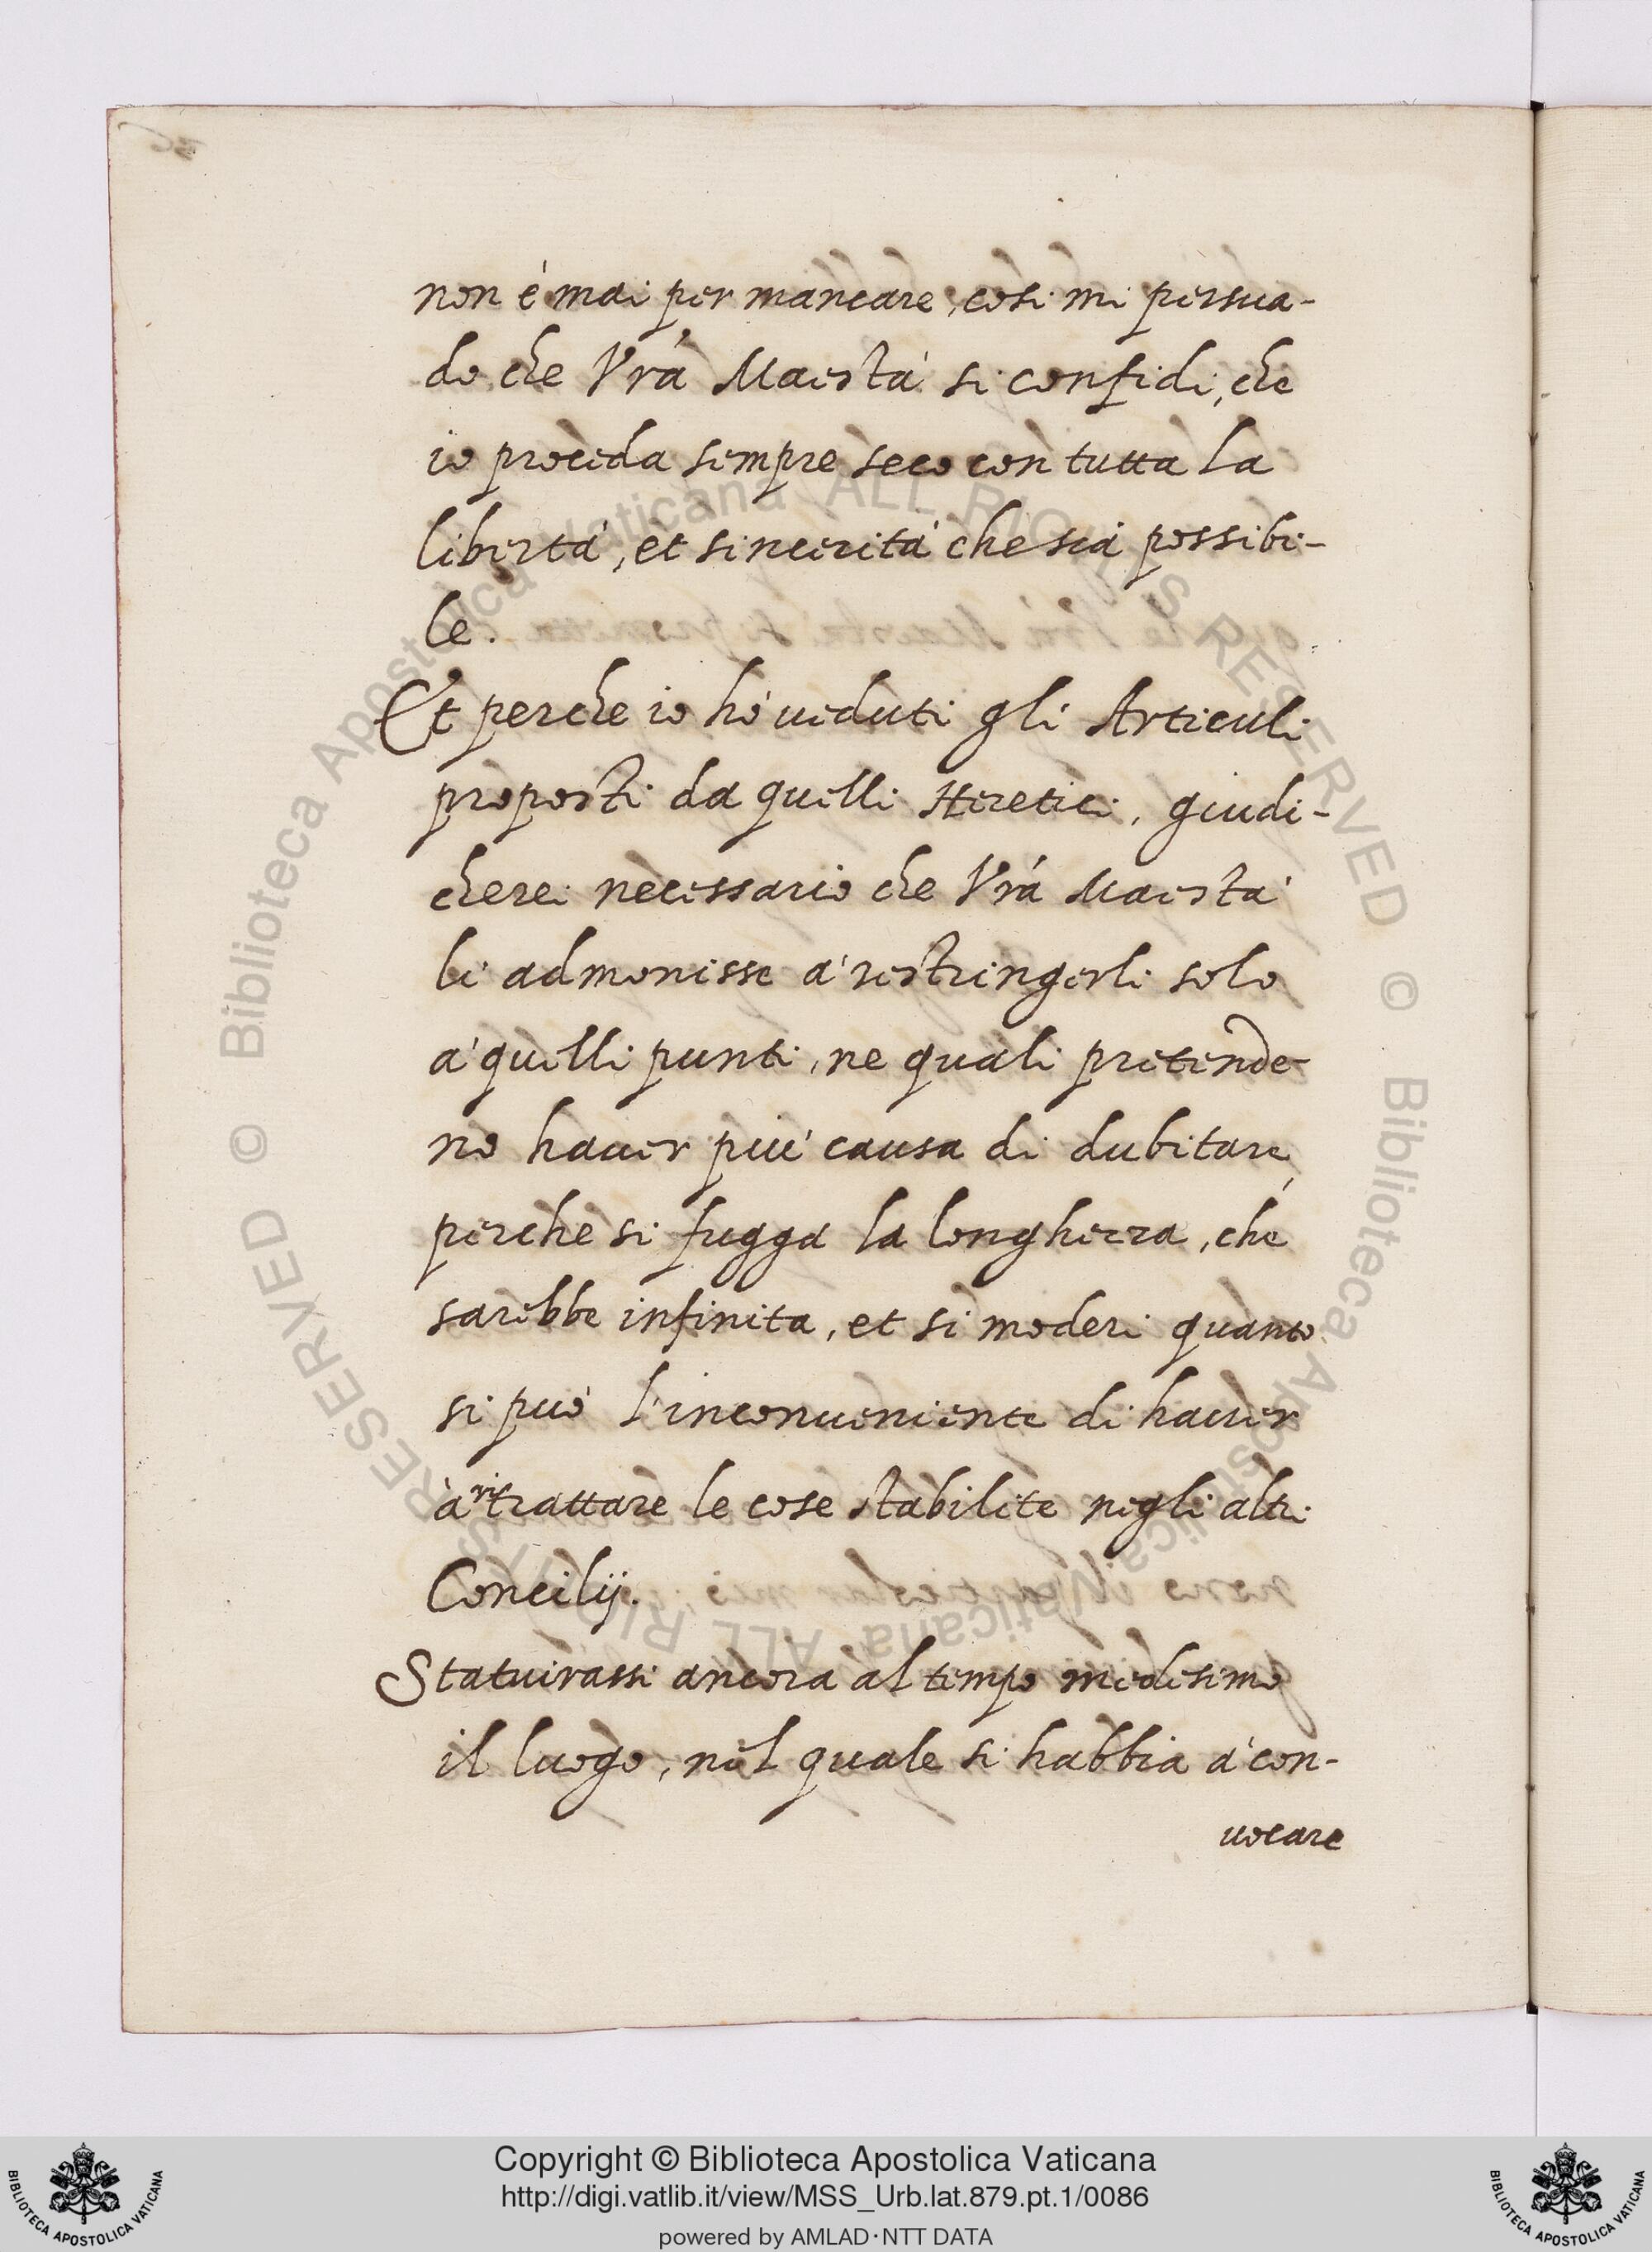 non è mai per mancare, cosi mi persua-
do che Vrà Maestà si confidi, che
io proceda sempre seco con tutta la
libertà, et sincerità che sia possibi-
le.
Et perche io hò ueduti gli Articuli
proposti da quelli Heretici, giudi-
cherei necessario che Vrà Maestà
li admonisse à restringerli solo
à quelli punti, ne quali pretende-
no hauer più causa di dubitare,
perche si fugga la longhezza, che
sarebbe infinita, et si moderi quanto
si può l'inconueniente di hauer
à ritrattare le cose stabilite negli altri
Concilij.
Statuirassi ancora al tempo medesimo
il luogo, nel quale si habbia à con-
uocare
© Biblioteca Apostolica Vaticana ALL RIGHTS RESERVED © Biblioteca Apostolica Vaticana ALL RIGHTS RESERVED
Copyright © Biblioteca Apostolica Vaticana
http://digi.vatlib.it/view/MSS_Urb.lat.879.pt.1/0086
powered by AMLAD·NTT DATA
BIBLIOTECA APOSTOLICA VATICANA
BIBLIOTECA APOSTOLICA VATICANA